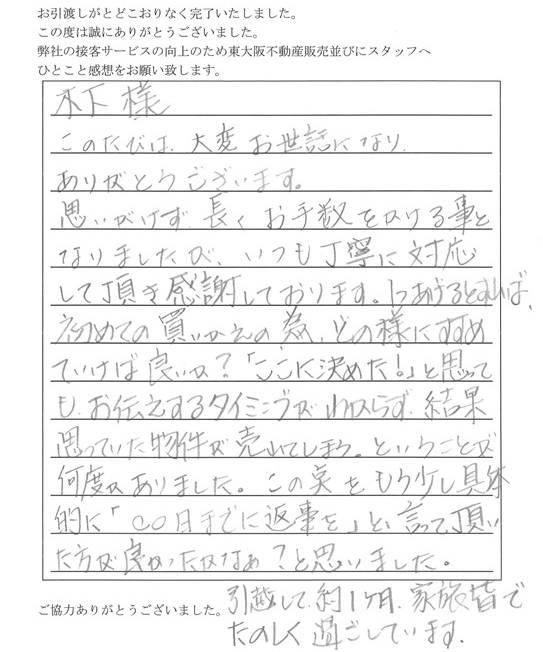 お引渡しがとどこおりなく完了いたしました。
この度は誠にありがとうございました。
弊社の接客サービスの向上のため東大阪不動産販売並びにスタッフへ
ひとこと感想をお願い致します。
木下様
このたびは、大変お世話になり、
ありがとうございます。
思いがけず、長くお手数をかける事と
なりましたが、いつも丁寧に対応
して頂き感謝しております。1つあげるとすれば、
初めての買いかえの為、どの様にすすめ
ていけば良いか?「ここに決めた!」と思って
も、お伝えするタイミングがわからず、結果
思っていた物件が売れてしまう。ということが
何度かありました。この点をもう少し具体
的に「○○日までに返事を」と、言って頂い
た方が良かったかなぁ?と思いました。
ご協力ありがとうございました。
引越して、約1ヶ月、家族皆で
たのしく過ごしています。